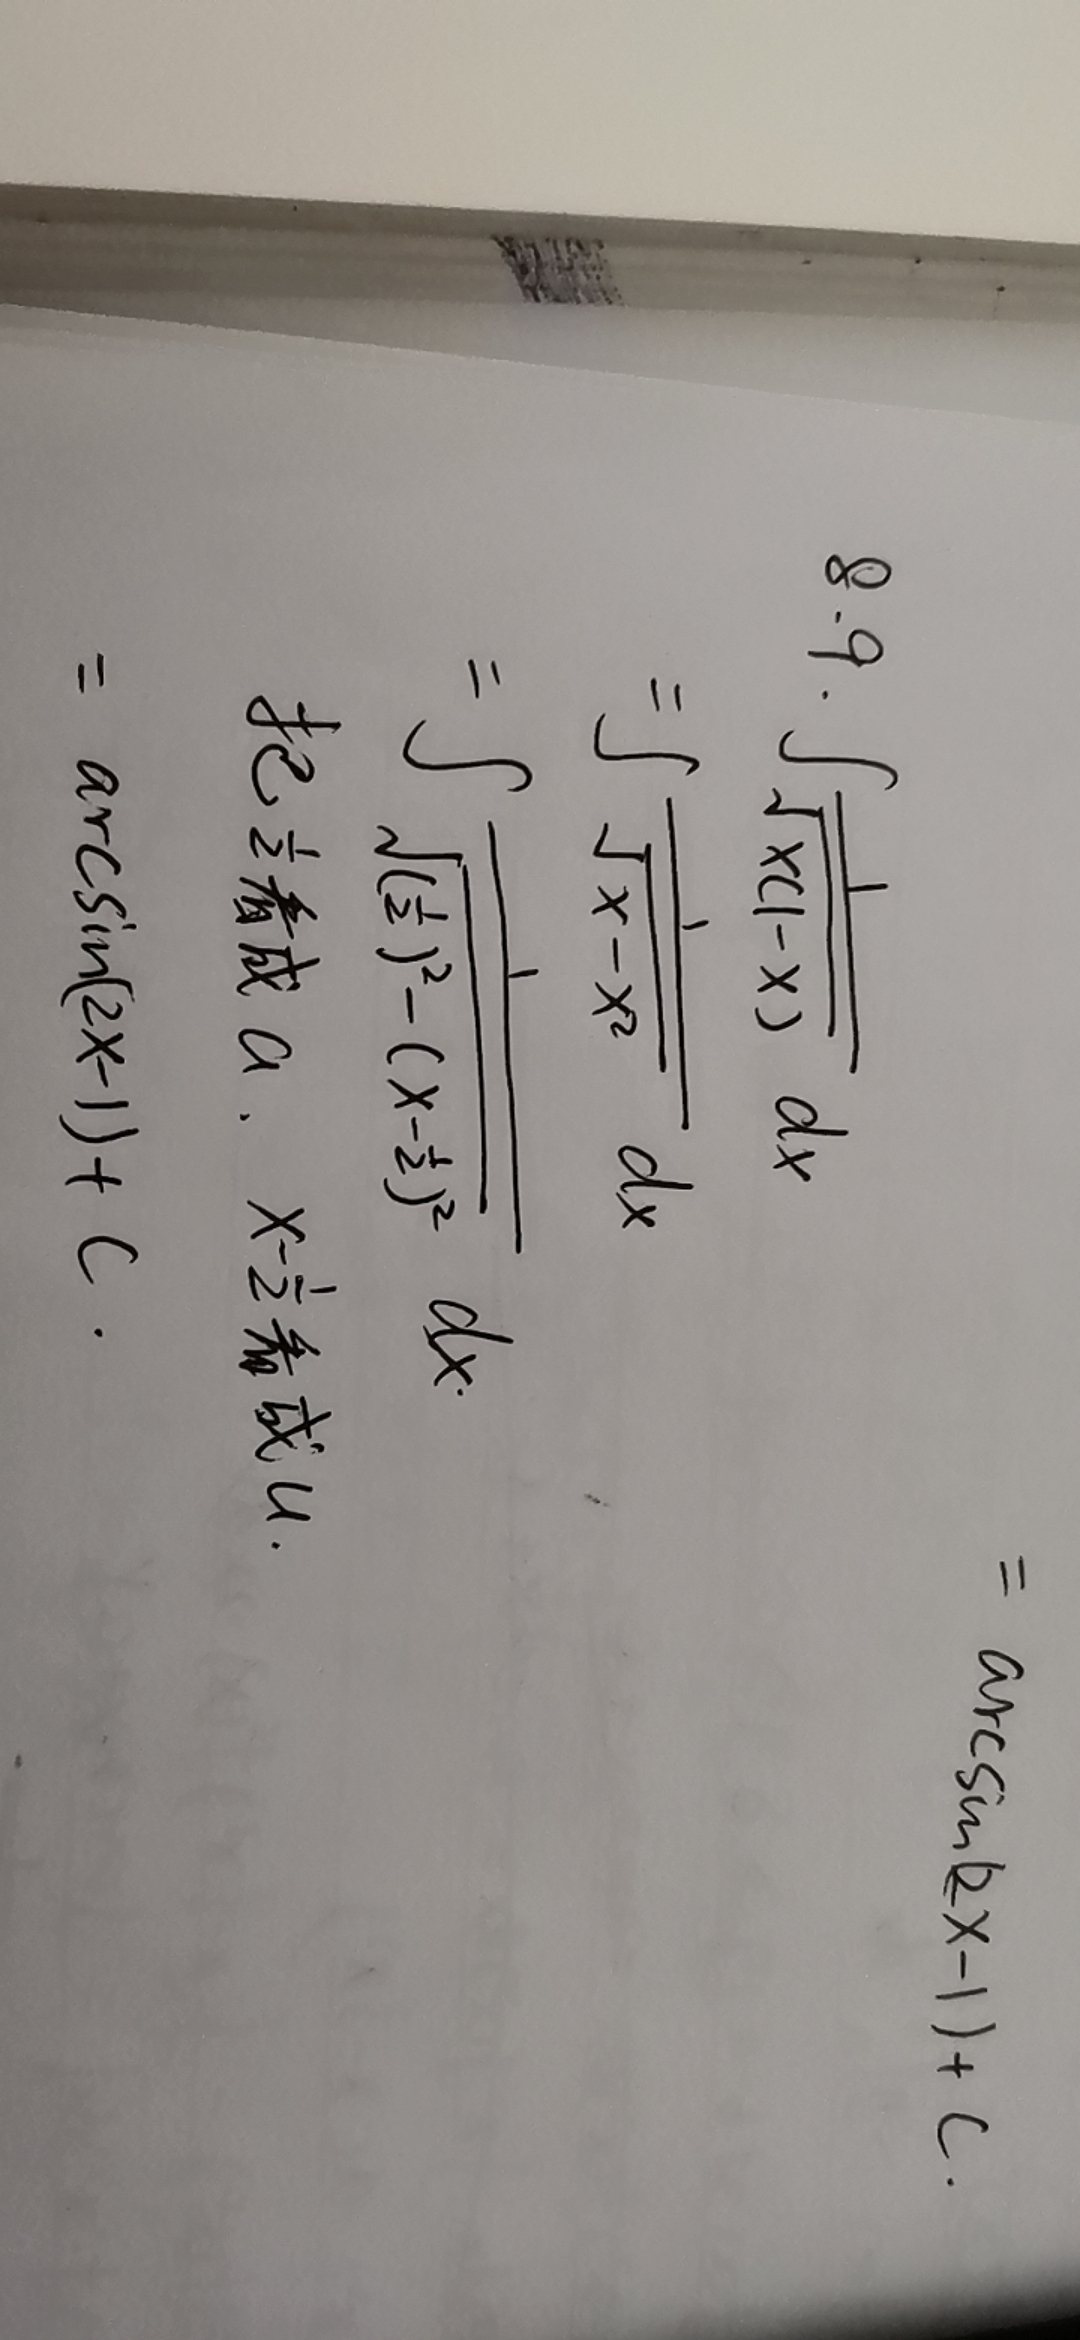 = arcsin(2x-1)+C.
8.9. ∫ 1/√(x(1-x)) dx
= ∫ 1/√(x-x²) dx
= ∫ 1/√((1/2)²-(x-1/2)²) dx.
把 1/2 看成 a. x-1/2 看成 u.
= arcsin(2x-1)+C.